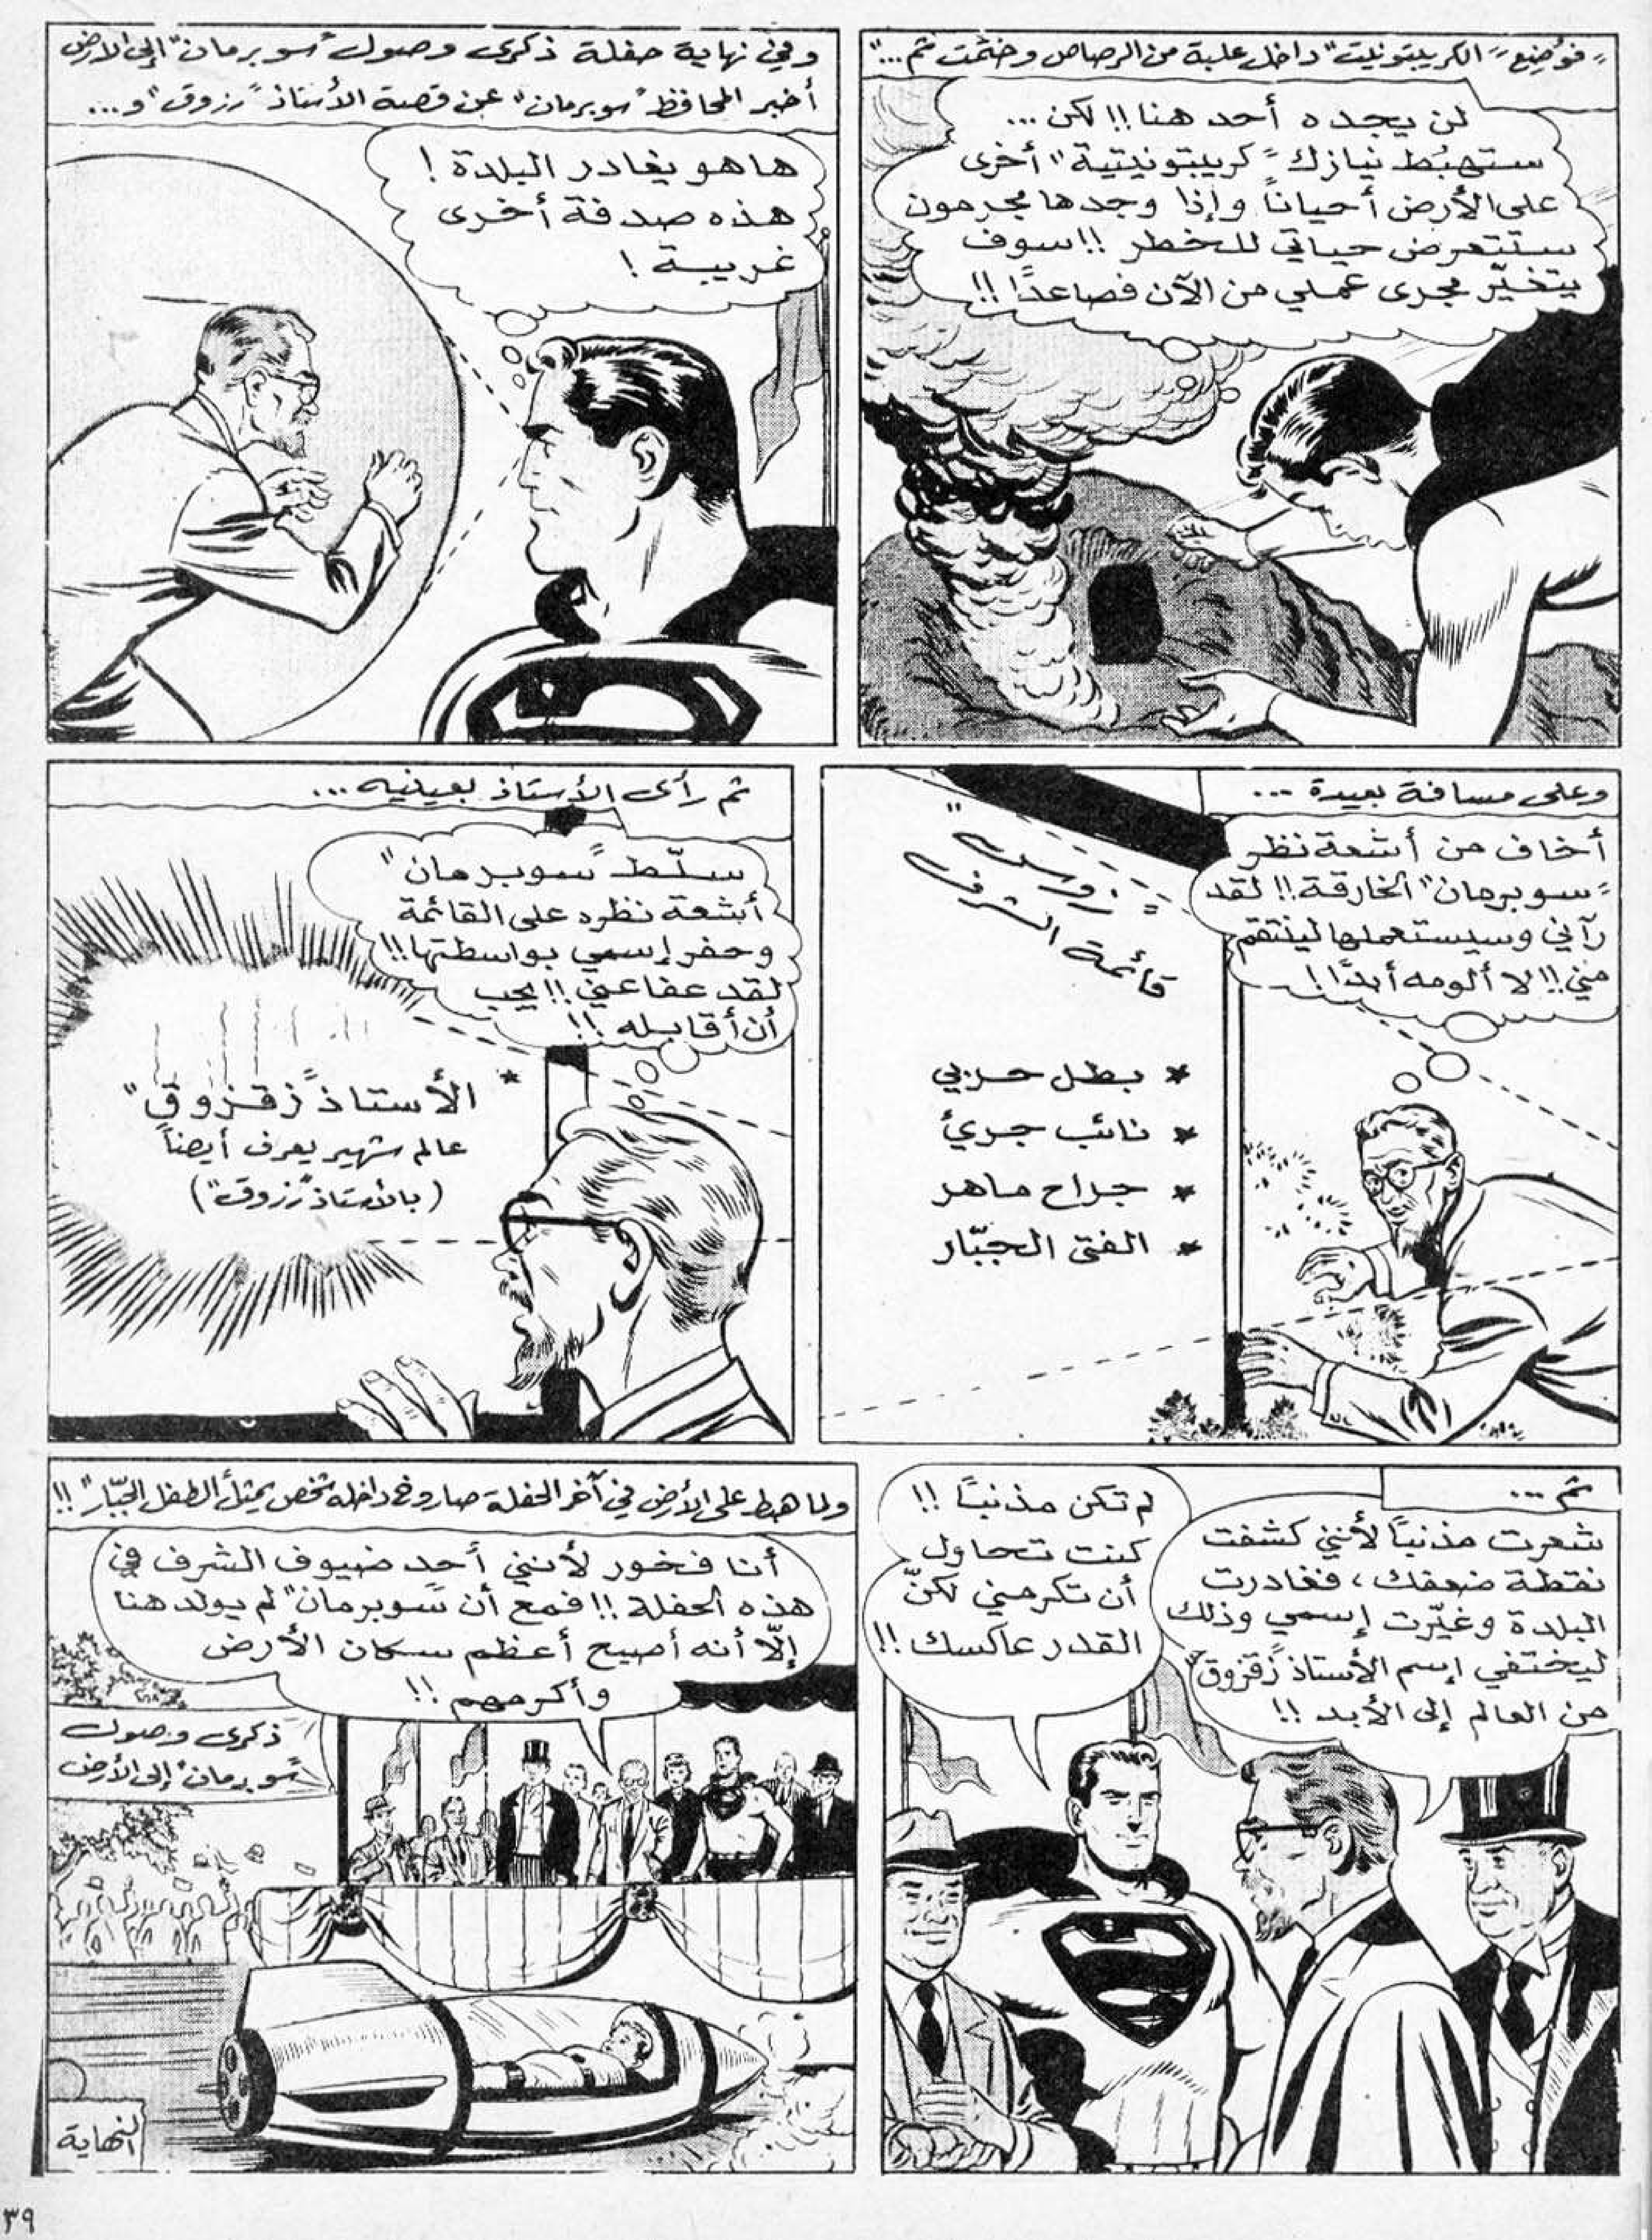 "فوُضِع "الكريبتونيت" داخل علبة من الرصاص وختمت ثم..."
لن يجده أحد هنا!! لكن...
ستهبُط نيازك "كريبتونيتية" أخرى
على الأرض أحياناً وإذا وجدها مجرمون
ستتعرض حياتي للخطر!! سوف
يتغيّر مجرى عملي من الآن فصاعدًا!!
وفي نهاية حفلة ذكرى وصول "سوبرمان" إلى الأرض
أخبر المحافظ "سوبرمان" عن قصة الأستاذ "رزوق" و...
ها هو يغادر البلدة!
هذه صدفة أخرى
غريبة!
وعلى مسافة بعيدة...
أخاف من أشعة نظر
"سوبرمان" الخارقة!! لقد
رآني وسيستعملها لينتقم
مني!! لا ألومه أبدًا!
قائمة الشرف
* بطل حربي
* نائب جريئ
* جراح ماهر
* الفتى الجبّار
ثم رأى الأستاذ بعينيه...
سلّط "سوبرمان"
أشعة نظره على القائمة
وحفر إسمي بواسطتها!!
لقد عفا عني!! يجب
أن أقابله!!
* الأستاذ "زقزوق"
عالم شهير يعرف أيضاً
(بالأستاذ "رزوق")
ثم...
شعرت مذنباً لأنني كشفت
نقطة ضعفك، فغادرت
البلدة وغيّرت إسمي وذلك
ليختفي إسم الأستاذ "زقزوق"
من العالم إلى الأبد!!
لم تكن مذنباً!!
كنت تحاول
أن تكرمني لكنّ
القدر عاكسك!!
ولما هبط على الأرض في آخر الحفلة صاروخ داخله شخص يمثل "الطفل الجبّار"!!
أنا فخور لأنني أحد ضيوف الشرف في
هذه الحفلة!! فمع أن "سوبرمان" لم يولد هنا
إلّا أنه أصبح أعظم سكان الأرض
وأكرمهم!!
ذكرى وصول
"سوبرمان" إلى الأرض
النهاية
٣٩